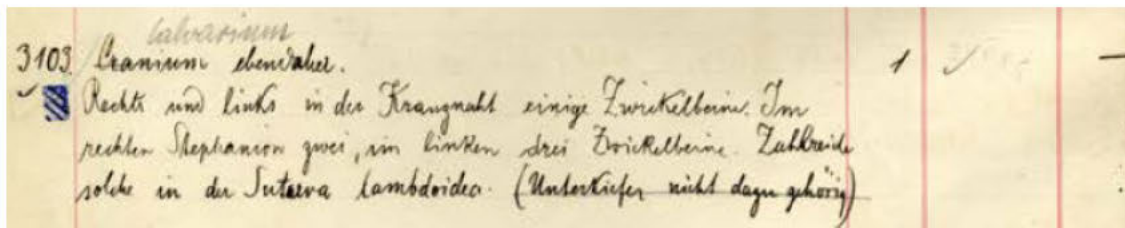 Calvarium
3103. Cranium ebendaher. 1
Rechts und links in der Kranznaht einige Zwickelbeine. Im
rechten Stephanion zwei, im linken drei Zwickelbeine. Zahlreiche
solche in der Sutura lambdoidea. (Unterkiefer nicht dazu gehörig)